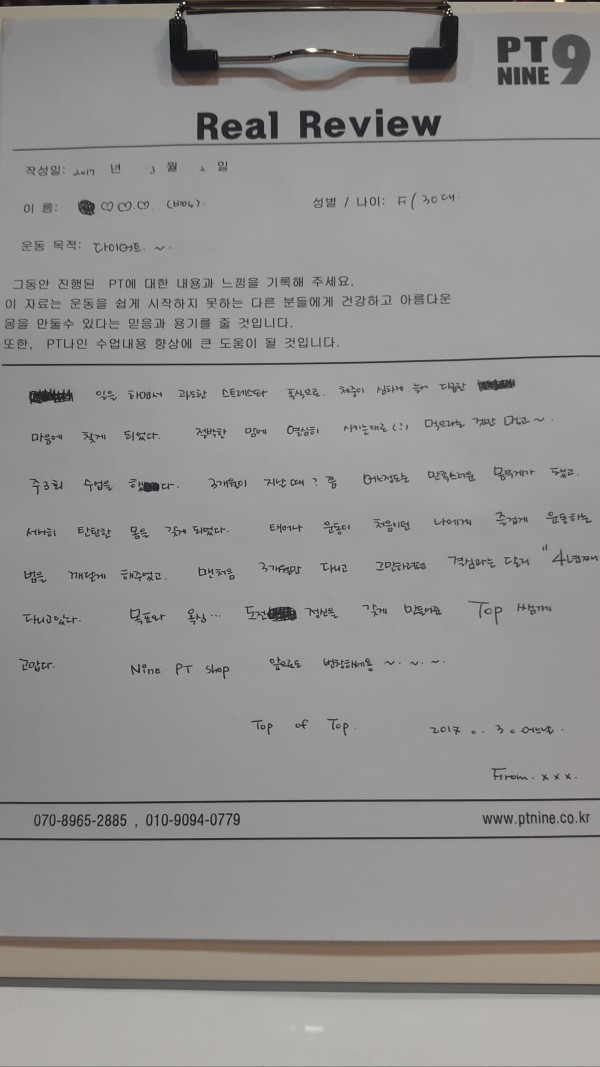 PT NINE 9
Real Review
작성일: 2017 년 3 월 2 일
이 름: ♡♡.♡ (비밀). 성별 / 나이: F / 30대.
운동 목적: 다이어트. ~.
그동안 진행된 PT에 대한 내용과 느낌을 기록해 주세요.
이 자료는 운동을 쉽게 시작하지 못하는 다른 분들에게 건강하고 아름다운
몸을 만들수 있다는 믿음과 용기를 줄 것입니다.
또한, PT나인 수업내용 향상에 큰 도움이 될 것입니다.
일을 하면서 과도한 스트레스와 폭식으로. 체중이 심하게 늘어 다급한
마음에 찾게 되었다. 절박한 맘에 열심히 시키는대로(!) 먹으라는 것만 먹고~.
주3회 수업을 했다. 3개월이 지난 때? 쯤 어느정도는 만족스러운 몸무게가 됐고.
서서히 탄탄한 몸을 갖게 되었다. 태어나 운동이 처음이런 나에게 즐겁게 운동하는
법을 깨닫게 해주었고. 맨처음 3개월만 다니고 그만하려던 결심과는 달리 "4년째
다니고있다. 목표와 욕심... 도전 정신을 갖게 만들어준 Top 쌤께
고맙다. Nine PT shop 앞으로도 번창하세용 ~.~.~.
Top of Top. 2017. 3. 어느날.
From. x x x.
070-8965-2885 , 010-9094-0779 www.ptnine.co.kr